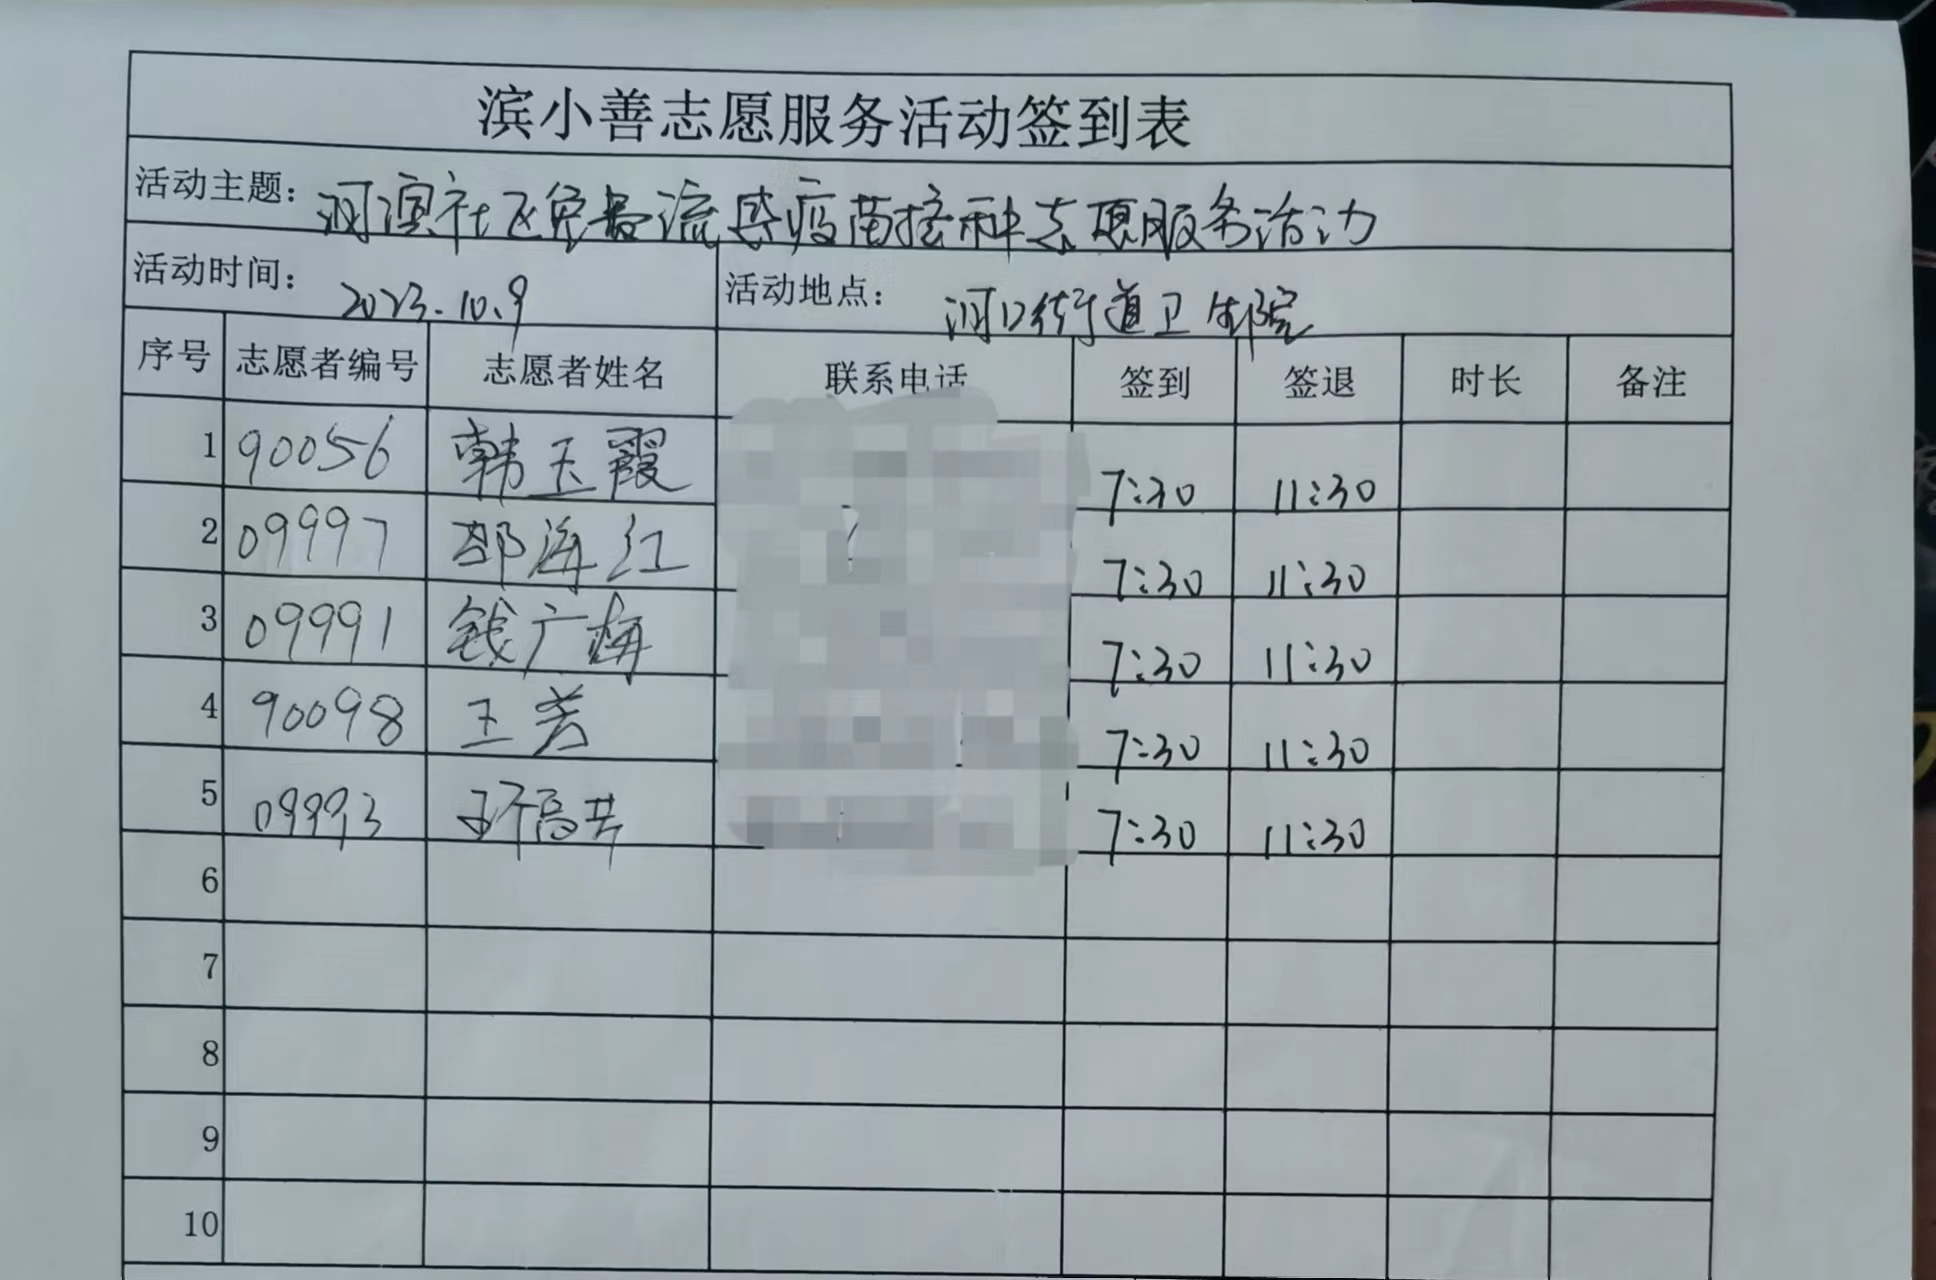 滨小善志愿服务活动签到表
活动主题: 河滨社区免费流感疫苗接种志愿服务活动
活动时间: 2023.10.9 活动地点: 河口街道卫生院
序号 志愿者编号 志愿者姓名 联系电话 签到 签退 时长 备注
1 90056 韩玉霞 7:30 11:30
2 09997 邵海红 7:30 11:30
3 09991 钱广梅 7:30 11:30
4 90098 王芳 7:30 11:30
5 09993 7:30 11:30
6
7
8
9
10